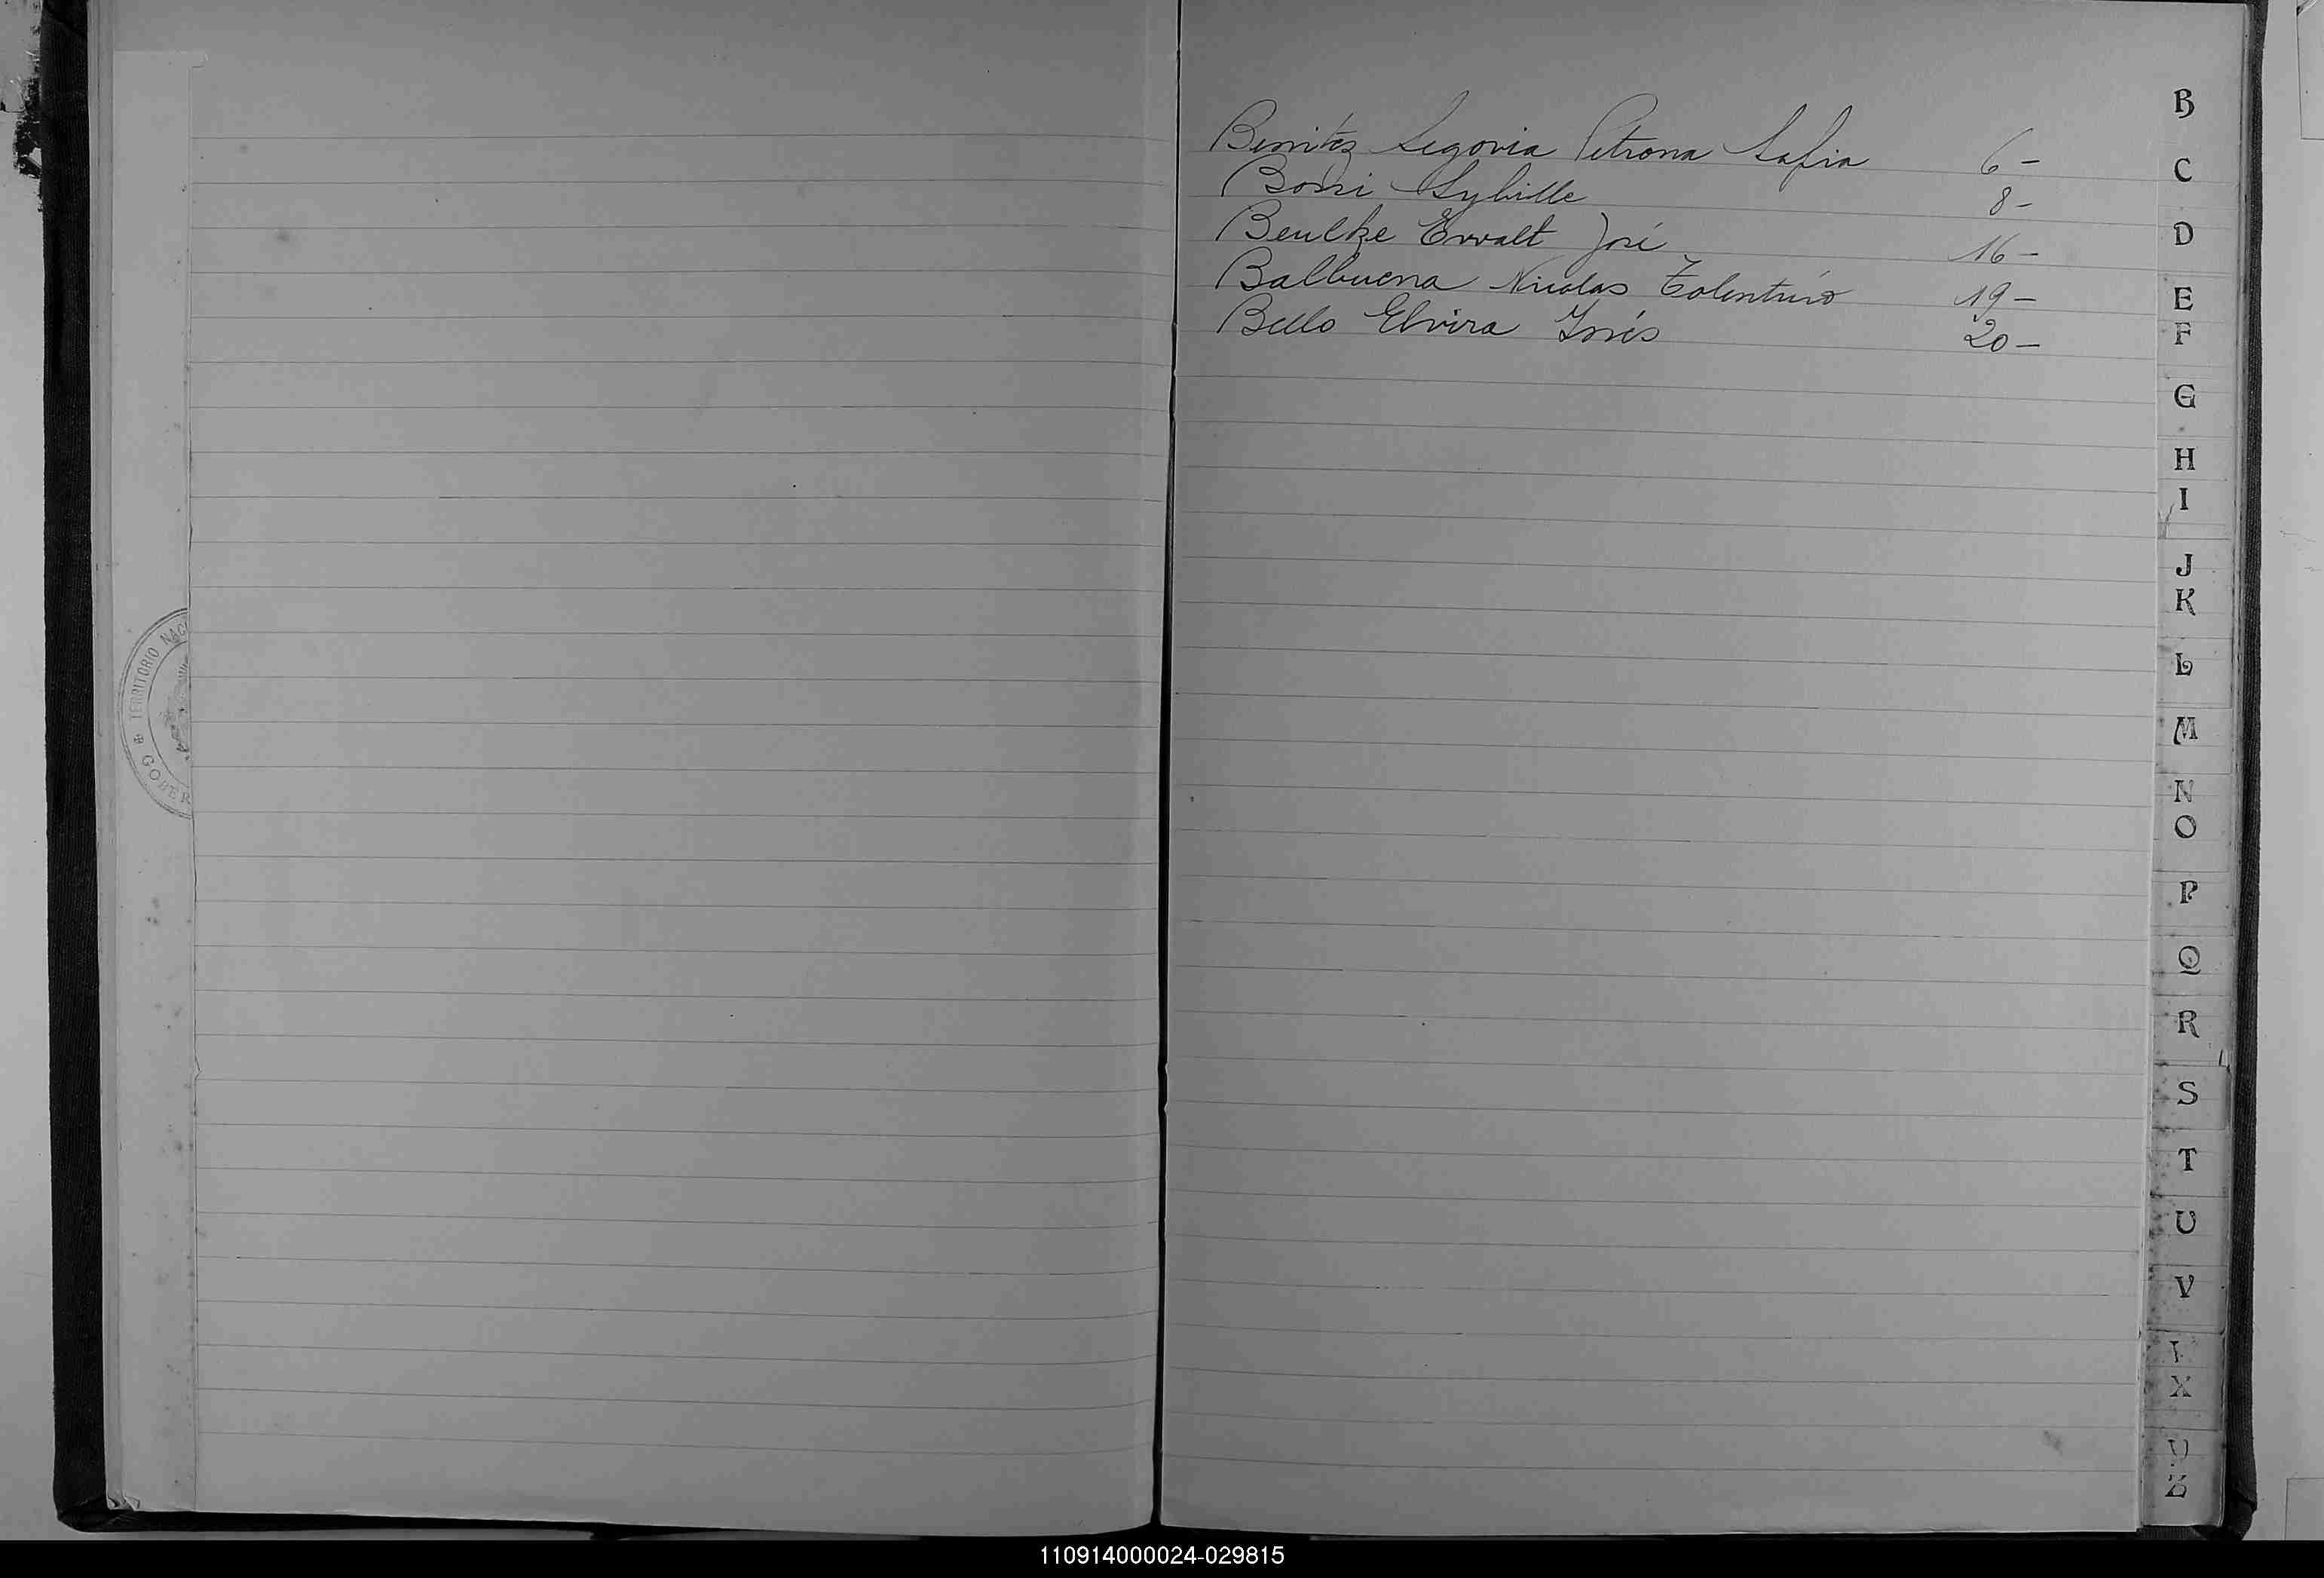 TERRITORIO NAC
GOBER
Benitez Segovia Petrona Safia 6 -
Bossi Sybille 8 -
Beulke Ervalt José 16 -
Balbuena Nicolas Tolentino 19 -
Bello Elvira Inés 20 -
B
C
D
E
F
G
H
I
J
K
L
M
N
O
P
Q
R
S
T
U
V
X
Z
110914000024-029815